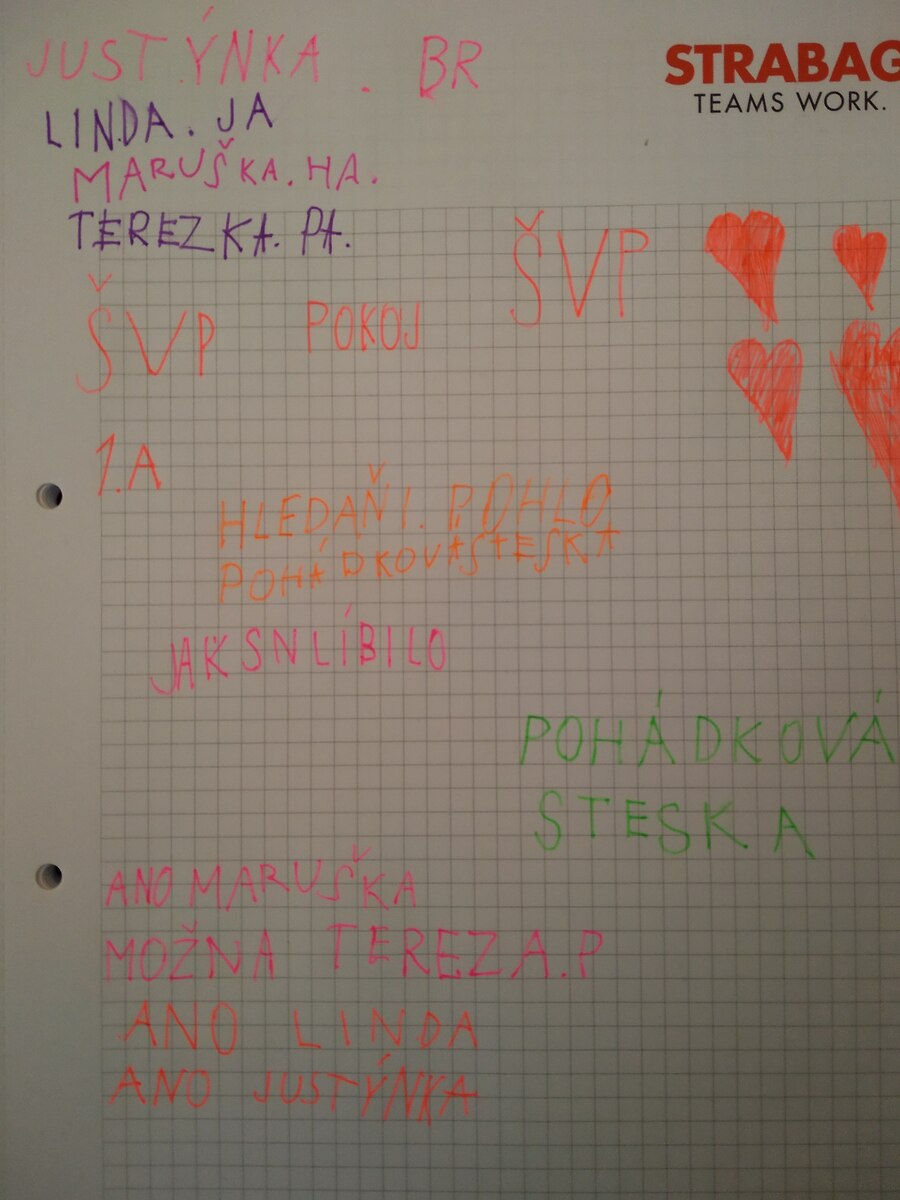 JUSTÝNKA. BR
STRABAG
TEAMS WORK.
LINDA. JA
MARUŠKA. HA.
TEREZKA. PA.
ŠVP POKOJ ŠVP
1.A
HLEDAŇI. POHLO
POHÁDKOVASTESKA
JAK SN LÍBILO
POHÁDKOVÁ
STESKA
ANO MARUŠKA
MOŽNA TEREZA.P
ANO LINDA
ANO JUSTÝNKA